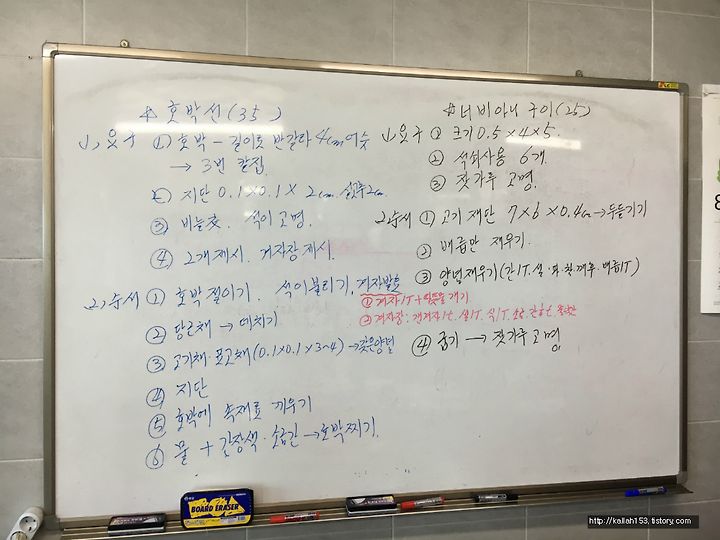 ☆ 호박선 (35)
1, 요구 ① 호박 - 길이로 반갈라 4cm 어슷
→ 3번 칼집.
② 지단 0.1×0.1× 2cm. 실고추 2cm
③ 비늘잣. 석이 고명.
④ 2개제시. 겨자장 제시.
2, 순서 ① 호박 절이기. 석이불리기, 겨자발효
① 겨자1T + 개기
② 겨자장 : 갠겨자1t. 설1T. 식1T. 소금. 간장t.
② 당근채 → 데치기
③ 고기채·표고채 (0.1×0.1×3~4) → 갖은양념
④ 지단
⑤ 호박에 속재료 끼우기
⑥ 물 + 간장색·소금간 → 호박찌기.
☆ 너비아니 구이 (25)
1, 요구 ① 크기 0.5×4×5.
② 석쇠사용 6개.
③ 잣가루 고명.
2, 순서 ① 고기 재단 7×6×0.4cm → 두들기기
② 배즙만 재우기.
③ 양념재우기 (간1T. 설·파·참·깨·후·배즙1T)
④ 굽기 → 잣가루 고명
BOARD ERASER
http://kallah153.tistory.com